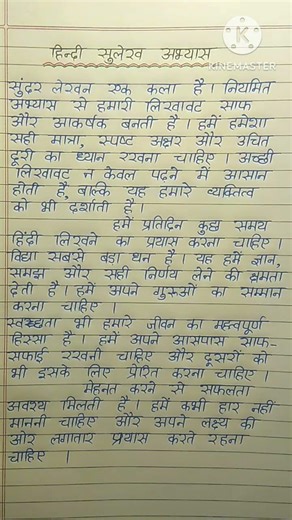 KINEMASTER
हिन्दी सुलेख अभ्यास
सुंदर लेखन एक कला है। नियमित
अभ्यास से हमारी लिखावट साफ
और आकर्षक बनती है। हमें हमेशा
सही मात्रा, स्पष्ट अक्षर और उचित
दूरी का ध्यान रखना चाहिए। अच्छी
लिखावट न केवल पढ़ने में आसान
होती है, बल्कि यह हमारे व्यक्तित्व
को भी दर्शाती है।
हमें प्रतिदिन कुछ समय
हिंदी लिखने का प्रयास करना चाहिए।
विद्या सबसे बडा धन है। यह हमें ज्ञान,
समझ और सही निर्णय लेने की क्षमता
देती है। हमें अपने गुरूओं का सम्मान
करना चाहिए।
स्वच्छता भी हमारे जीवन का महत्वपूर्ण
हिस्सा है। हमें अपने आसपास साफ-
सफाई रखनी चाहिए और दूसरों को
भी इसके लिए प्रेरित करना चाहिए।
मेहनत करने से सफलता
अवश्य मिलती है। हमें कभी हार नहीं
माननी चाहिए और अपने लक्ष्य की
ओर लगातार प्रयास करते रहना
चाहिए ।